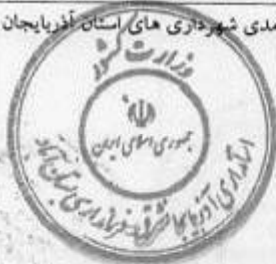 مدی شهرداری های استان آذربایجان
وزارت کشور
جمهوری اسلامی ایران
استانداری آذربایجان شرقی - فرمانداری بستان آباد